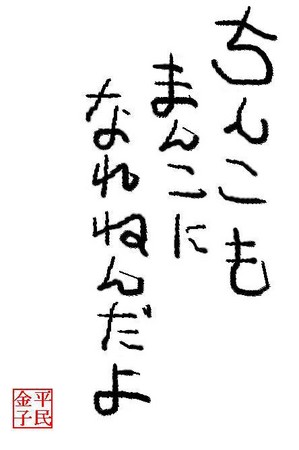 ちんこも
まんこに
なれねんだよ
平民
金子